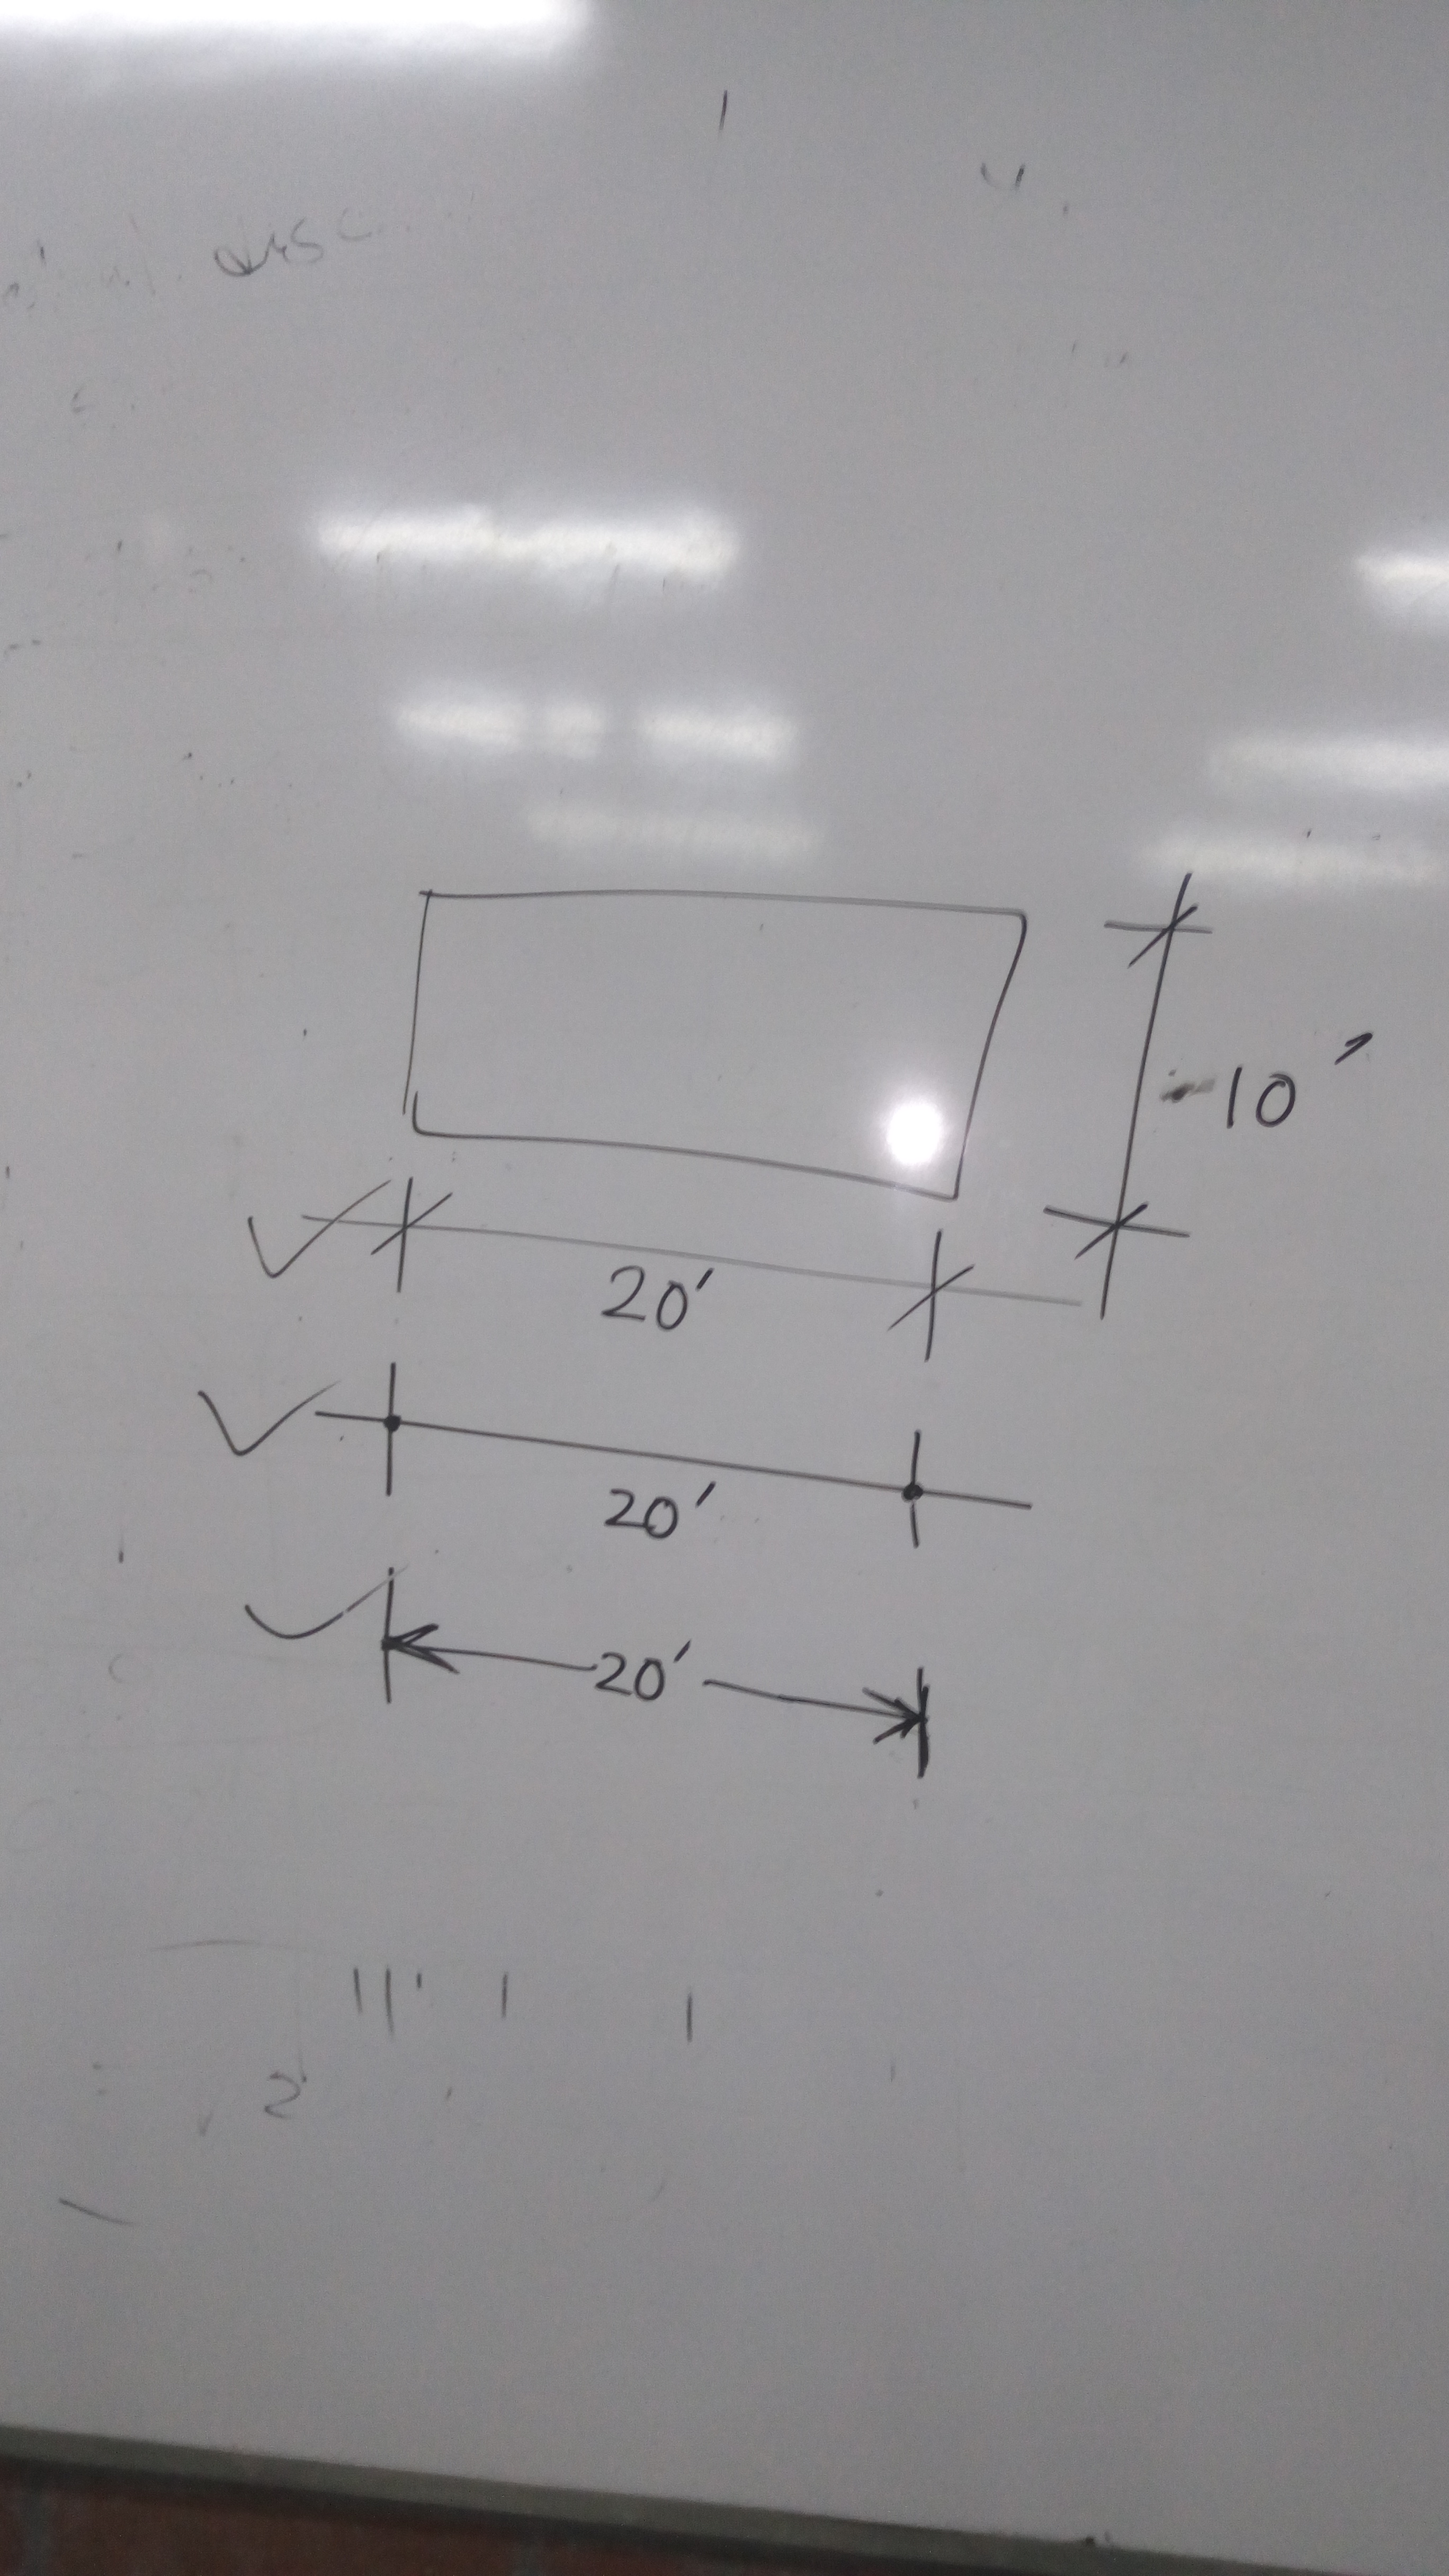 10'
20'
20'
20'
2